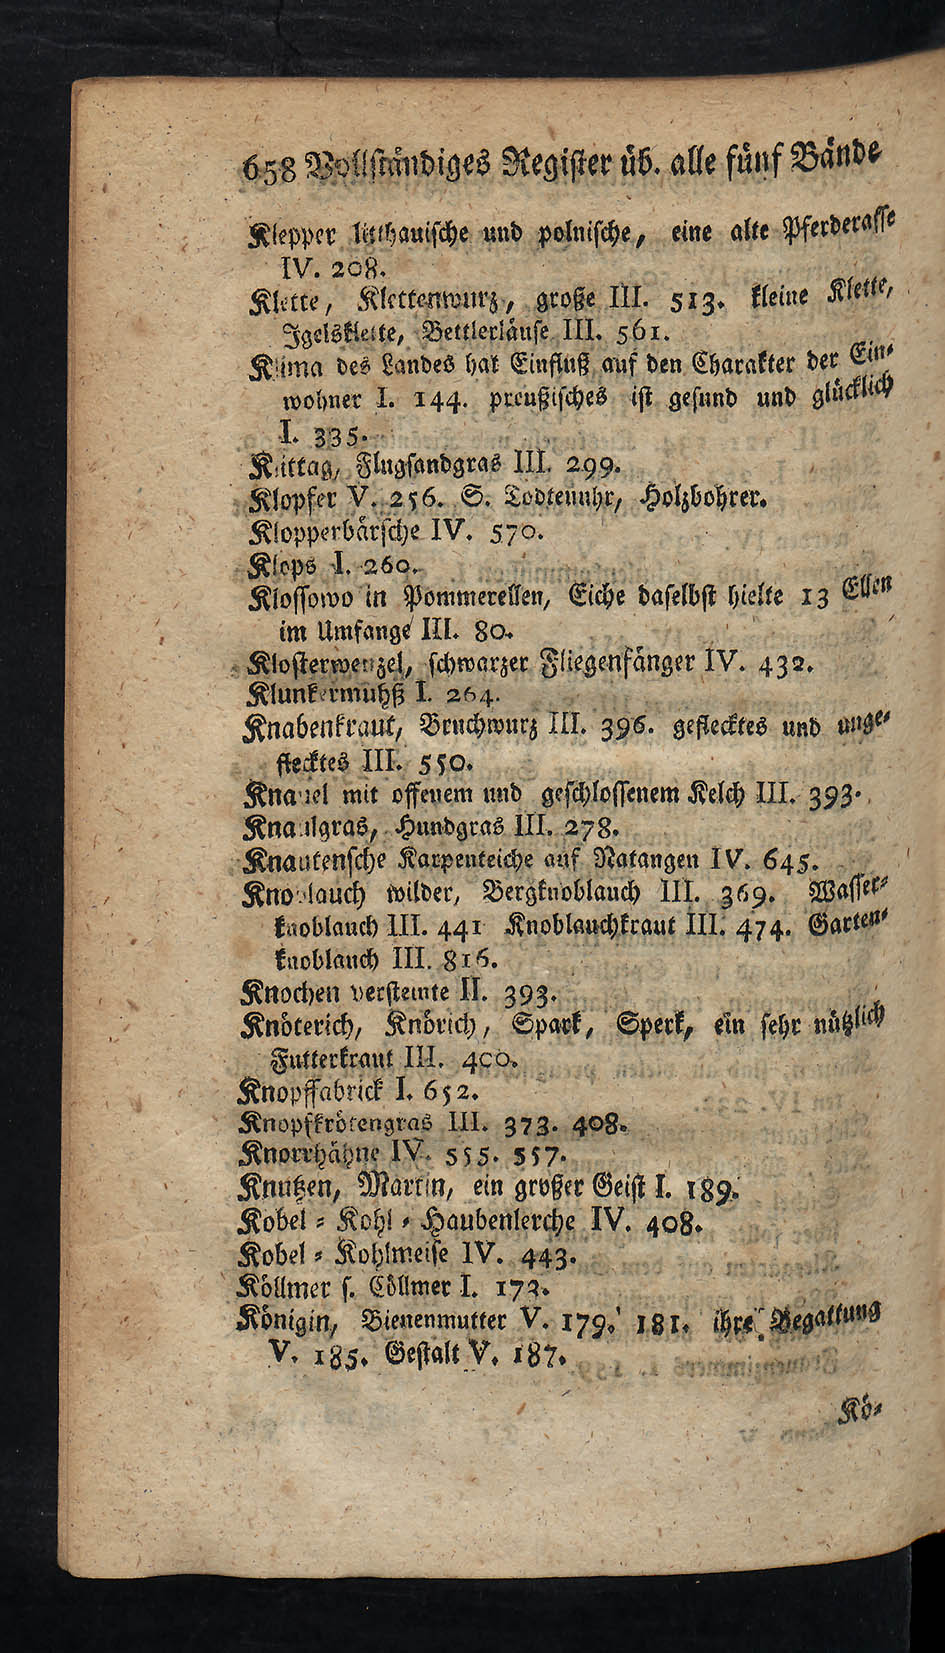 658 Vollständiges Register üb. alle fünf Bände
Klepper litthauische und polnische, eine alte Pferderasse
IV. 208.
Klette, Klettenwurz, große III. 513. kleine Klette,
Igelsklette, Bettlerläuse III. 561.
Klima des Landes hat Einfluß auf den Charakter der Ein-
wohner I. 144. preußisches ist gesund und glücklich
I. 335.
Klittag, Flugsandgras III. 299.
Klopfer V. 256. S. Todtenuhr, Holzbohrer.
Klopperbärsche IV. 570.
Klops I. 260.
Klossowo in Pommerellen, Eiche daselbst hielte 13 Ellen
im Umfange III. 80.
Klosterwenzel, schwarzer Fliegenfänger IV. 432.
Klunkermuhß I. 264.
Knabenkraut, Bruchwurz III. 396. geflecktes und unge-
flecktes III. 550.
Knauel mit offenem und geschlossenem Kelch III. 393.
Knaulgras, Hundgras III. 278.
Knautensche Karpenteiche auf Natangen IV. 645.
Knoblauch wilder, Bergknoblauch III. 369. Wasser-
knoblauch III. 441 Knoblauchkraut III. 474. Garten-
knoblauch III. 816.
Knochen versteinte II. 393.
Knöterich, Knörich, Spark, Sperk, ein sehr nützlich
Futterkraut III. 400.
Knopffabrick I. 652.
Knopfkrötengras III. 373. 408.
Knorrhähne IV. 555. 557.
Knutzen, Martin, ein großer Geist I. 189.
Kobel - Kohl - Haubenlerche IV. 408.
Kobel - Kohlmeise IV. 443.
Köllmer s. Cöllmer I. 173.
Königin, Bienenmutter V. 179. 181. ihre Begattung
V. 185. Gestalt V. 187.
Kö-